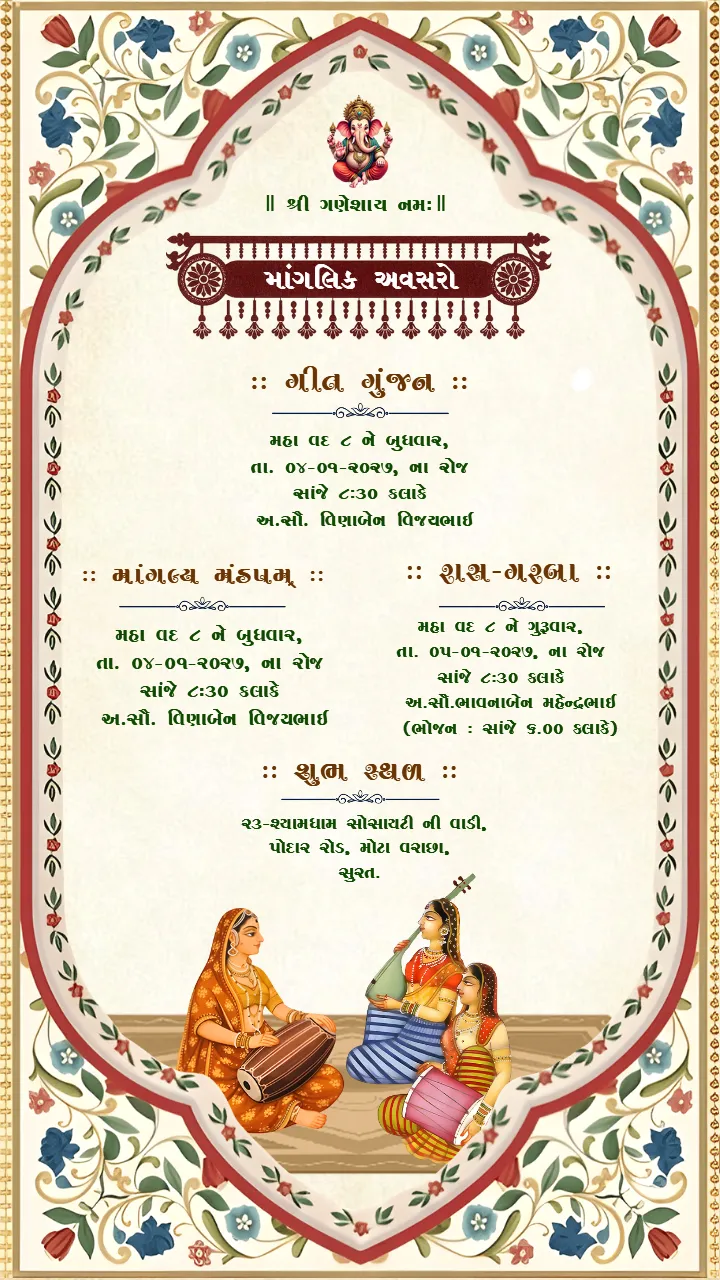 ॥ શ્રી ગણેશાય નમઃ॥
માંગલિક અવસરો
:: ગીત ગુંજન ::
મહા વદ ૮ ને બુધવાર,
તા. ૦૪-૦૧-૨૦૨૭, ના રોજ
સાંજે ૮:૩૦ કલાકે
અ.સૌ. વિણાબેન વિજયભાઈ
:: માંગલ્ય મંડપમ્ ::
મહા વદ ૮ ને બુધવાર,
તા. ૦૪-૦૧-૨૦૨૭, ના રોજ
સાંજે ૮:૩૦ કલાકે
અ.સૌ. વિણાબેન વિજયભાઈ
:: રાસ-ગરબા ::
મહા વદ ૮ ને ગુરૂવાર,
તા. ૦૫-૦૧-૨૦૨૭, ના રોજ
સાંજે ૮:૩૦ કલાકે
અ.સૌ.ભાવનાબેન મહેન્દ્રભાઈ
(ભોજન : સાંજે ૬.૦૦ કલાકે)
:: શુભ સ્થળ ::
૨૩-શ્યામધામ સોસાયટી ની વાડી,
પોદાર રોડ, મોટા વરાછા,
સુરત.